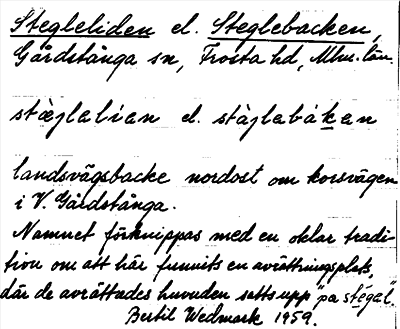 Stegleliden el. Steglebacken,
Gårdstånga sn, Frosta hd, Mlm. län.
stæ̀jlalían el. stàjlabákan
landsvägsbacke nordost om korsvägen
i V. Gårdstånga.
Namnet förknippas med en oklar tradi-
tion om att här funnits en avrättningsplats,
där de avrättades huvuden satts upp "på stégel".
Bertil Wedmark 1959.